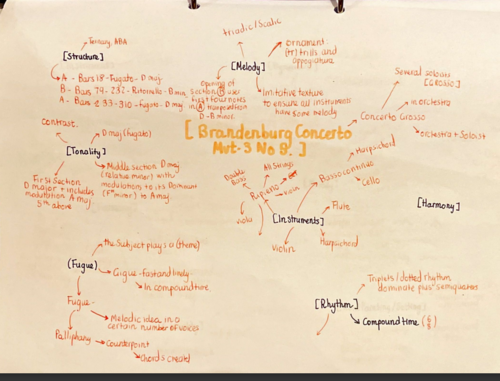 Ternary ABA
[Structure]
A - Bars 1-8 - Fugato - D maj
B - Bars 79 - 232 - Ritornello - B min
A - Bars 233 - 310 - Fugato - D maj
Contrast.
D maj (fugato)
[Tonality]
Middle section D maj
(relative minor) with
modulation to its Dominant
(F# minor) to A maj
First Section
D major + includes
modulation A maj
5th above
the Subject plays a (theme)
(Fugue)
Gigue - fast and lively
In compound time
Fugue -
Melodic idea in a
certain number of voices
Polliphony
Counterpoint
Chords created
triadic / Scalic
[Melody]
ornament
(tr) trills and
appogiatura
opening of
section B uses
first four notes
in A transposition
D - B minor
Imitative texture
to ensure all instruments
have some melody
[Brandenburg Concerto
Mvt. 3 No 8. ]
Several soloists
[GROSSO]
Concerto Grosso
orchestra
orchestra + Soloist
Harpsichord
Basso continuo
Cello
All Strings
Double
Bass
Ripieno
viola
[Instruments]
Flute
Harpsichord
Violin
[Harmony]
Triplets / dotted rhythm
dominate plus semiquavers
[Rhythm]
Compound time (6/8)